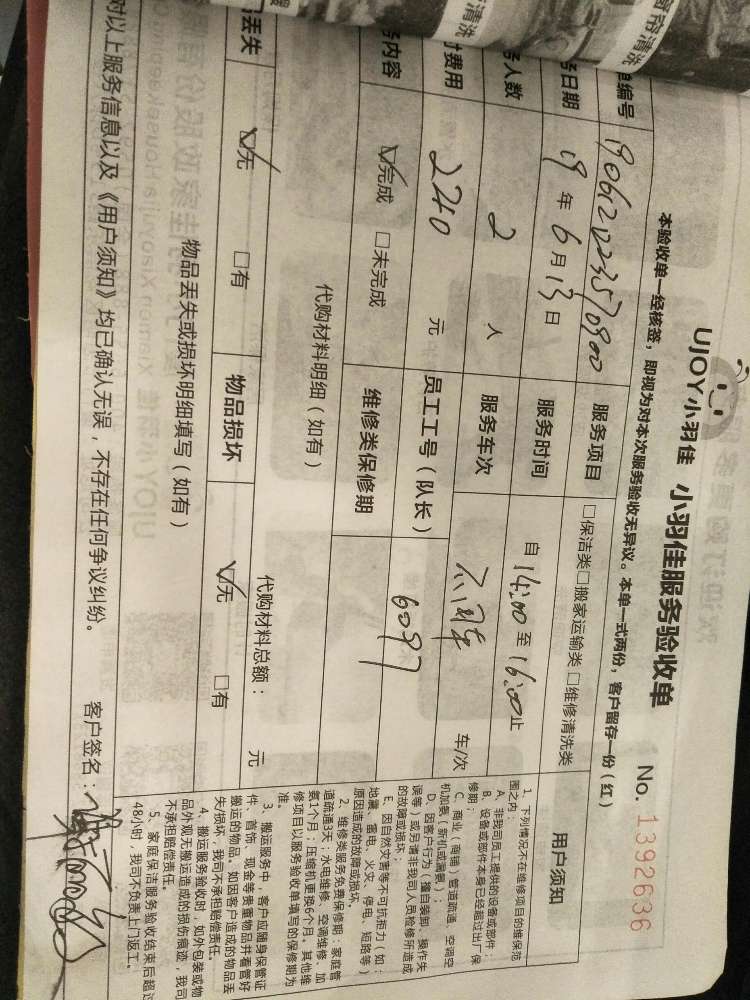 窗帘清洗
清洗
UJOY小羽佳 小羽佳服务验收单
No. 1392636
本验收单一经核签，即视为对本次服务验收无异议。本单一式两份，客户留存一份（红）
单编号
服务项目 □保洁类□搬家运输类□维修清洗类
务日期 19 年 6 月 13 日 服务时间 自 14:00 至 16:00 止
务人数 2 人 服务车次 车/次
付费用 元 员工工号（队长） 6097
务内容 ☑完成 □未完成 维修类保修期
代购材料明细（如有）
代购材料总额： 元
丢失 ☑无 □有 物品损坏 ☑无 □有
物品丢失或损坏明细填写（如有）
对以上服务信息以及《用户须知》均已确认无误，不存在任何争议纠纷。 客户签名：
用户须知
1、下列情况不在维修项目的维保范
围之内：
A、非我司员工提供的设备或部件；
B、设备或部件本身已经超过出厂保
修期；
C、商业（商铺）管道疏通、空调空
机加氨（新机或漏氨）；
D、因客户行为（擅自装卸、操作失
误等）或另请非我司人员检修所造成
的故障或损坏；
E、因自然灾害等不可抗拒力（如：
地震、雷电、火灾、停电、短路等）
原因造成的故障或损坏。
2、维修类服务免费保修期：家庭管
道疏通3天；水电维修、空调维修、加
氨1个月；压缩机更换6个月。其他维
修项目以服务验收单填写的保修期为
准。
3、搬运服务中，客户应随身保管证
件、首饰、现金等贵重物品并看管好
搬运的物品，如因客户造成的物品丢
失/损坏，我司不承担赔偿责任。
4、搬运服务验收时，如外包装或物
品外观无搬运造成的损伤痕迹，我司
不承担赔偿责任。
5、家庭保洁服务验收结束后超过
48小时，我司不负责上门返工。